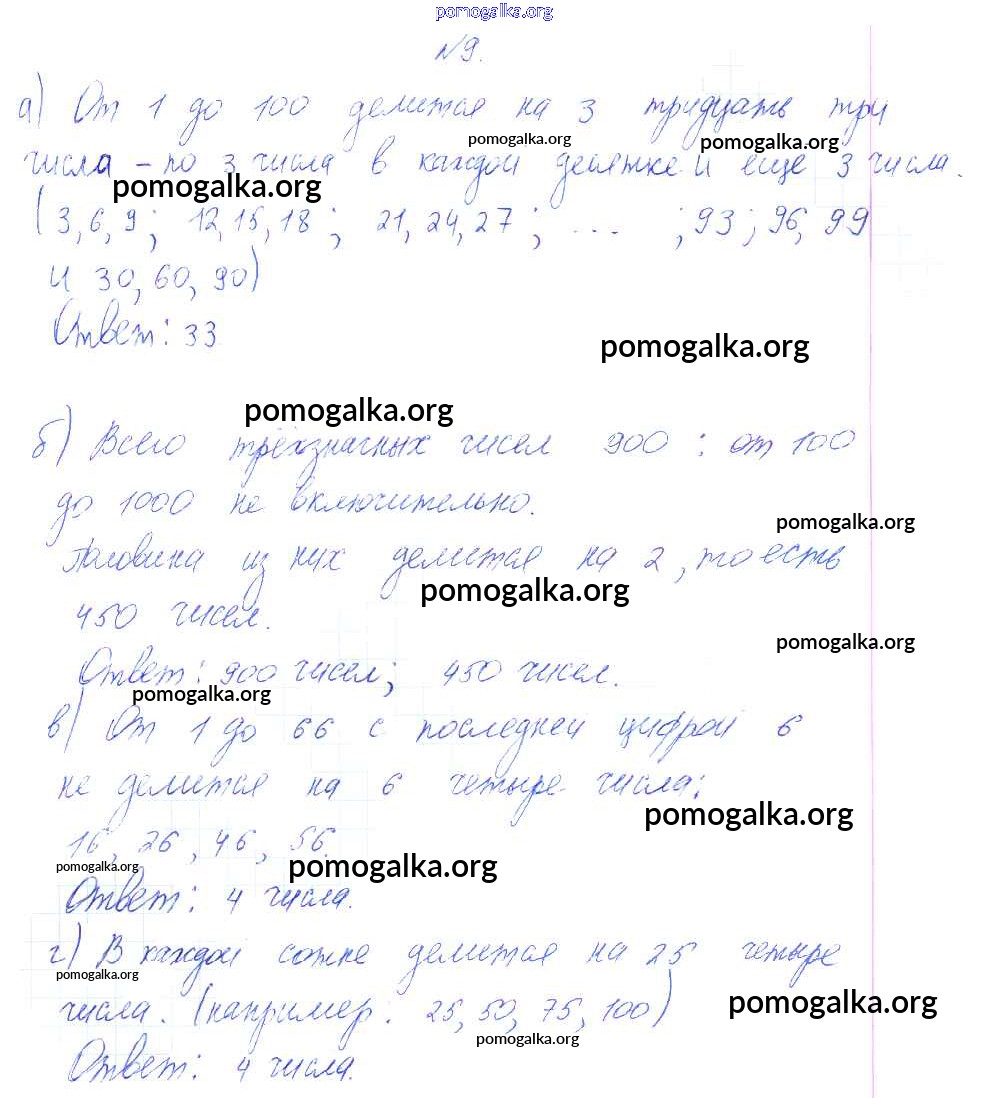 pomogalka.org
№9.
а) От 1 до 100 делится на 3 тридцать три
pomogalka.org
pomogalka.org
числа – по 3 числа в каждой десятке и еще 3 числа.
pomogalka.org
(3, 6, 9; 12, 15, 18; 21, 24, 27; ... ; 93; 96, 99
и 30, 60, 90)
Ответ: 33
pomogalka.org
pomogalka.org
б) Всего трёхзначных чисел 900 : от 100
до 1000 не включительно.
pomogalka.org
Половина из них делится на 2, то есть
pomogalka.org
450 чисел.
pomogalka.org
Ответ: 900 чисел; 450 чисел.
pomogalka.org
в) От 1 до 66 с последней цифрой 6
не делится на 6 четыре числа:
pomogalka.org
16, 26, 46, 56.
pomogalka.org
pomogalka.org
Ответ: 4 числа.
г) В каждой сотне делится на 25 четыре
pomogalka.org
pomogalka.org
числа. (например: 25, 50, 75, 100)
pomogalka.org
Ответ: 4 числа.